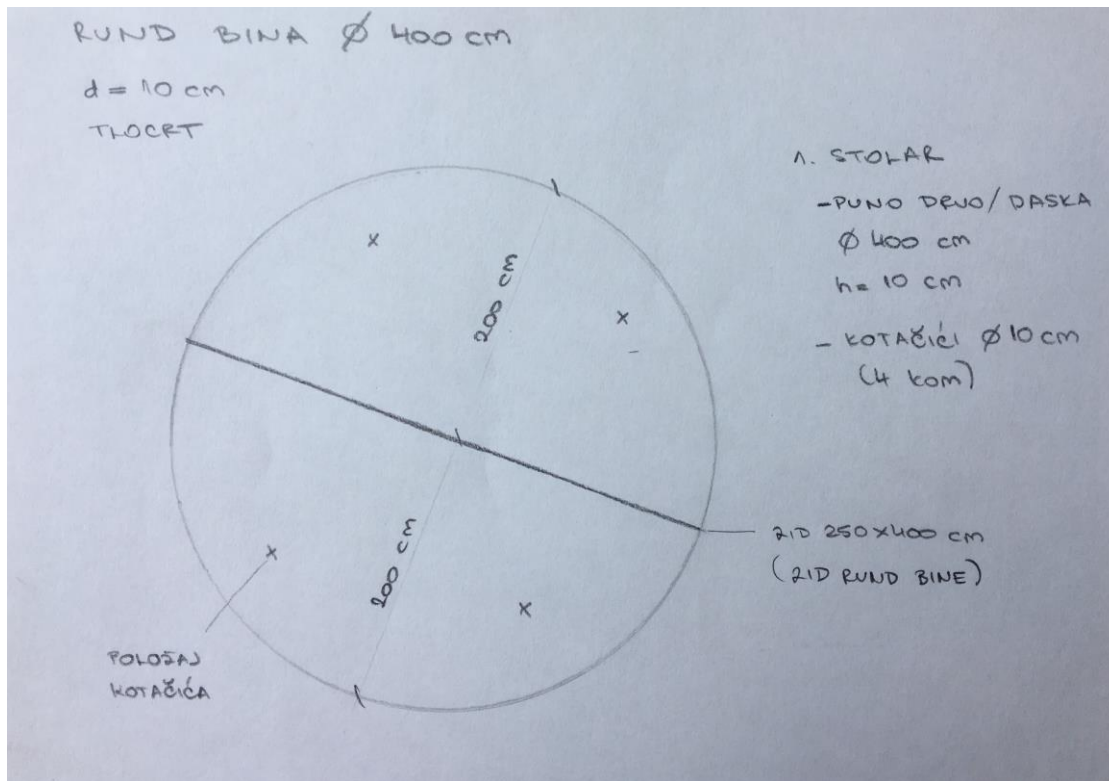 RUND BINA Ø 400 cm
d = 10 cm
TLOCRT
1. STOLAR
- PUNO DRVO / DASKA
Ø 400 cm
h = 10 cm
- KOTAČIĆI Ø 10 cm
(4 kom)
200 cm
200 cm
ZID 250 x 400 cm
(ZID RUND BINE)
POLOŽAJ
KOTAČIĆA